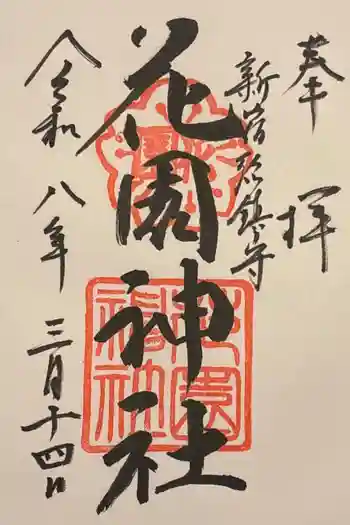 奉拝
新宿総鎮守
花園神社
令和八年三月十四日
花園
神社